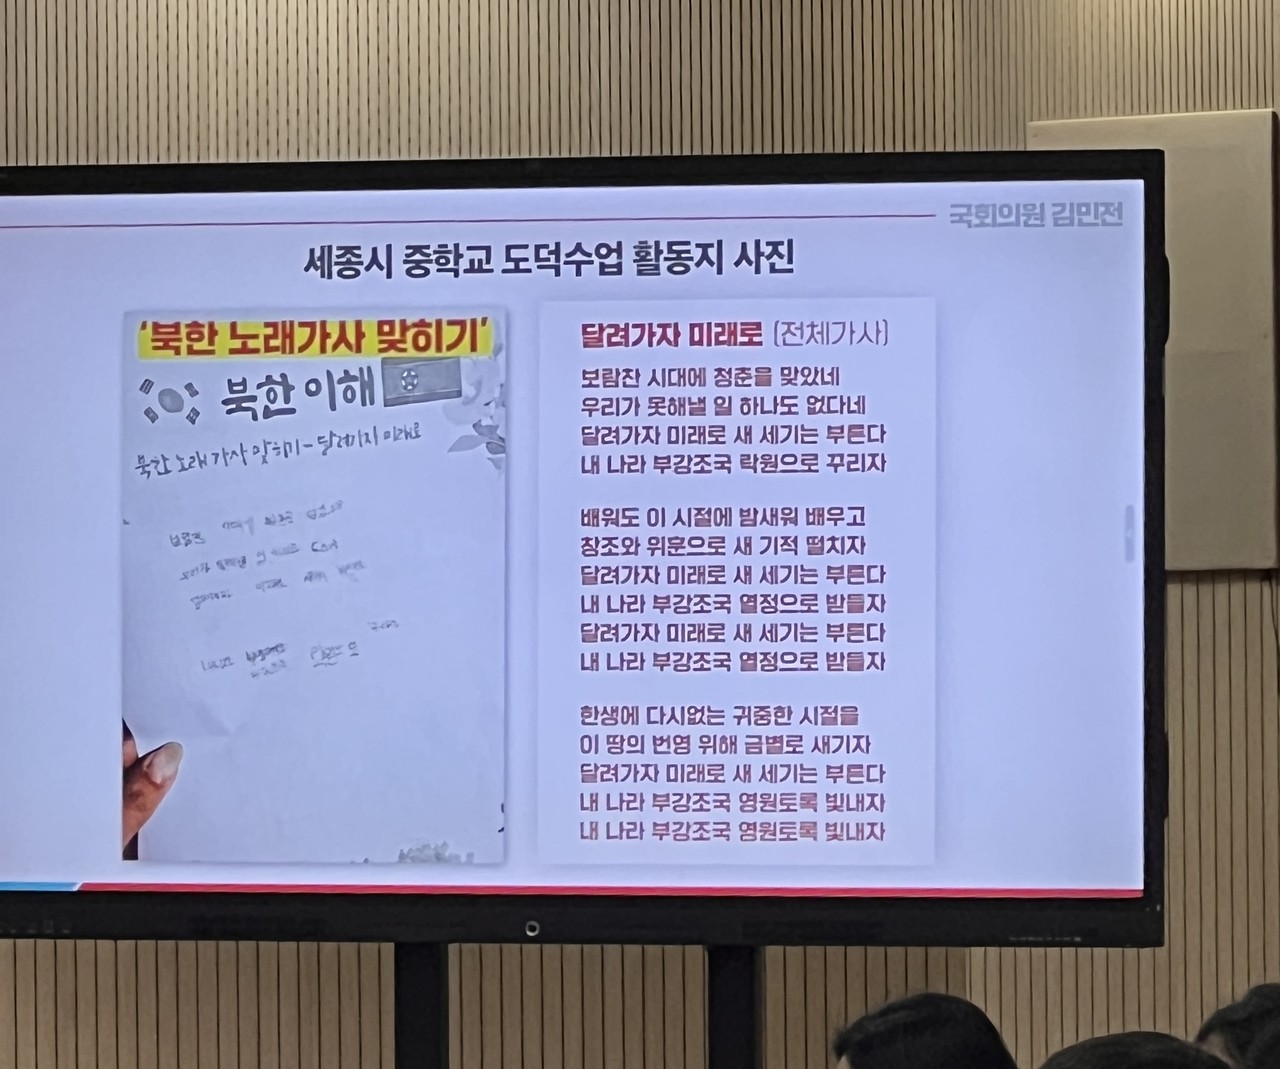 국회의원 김민전
세종시 중학교 도덕수업 활동지 사진
'북한 노래가사 맞히기'
북한 이해
북한 노래 가사 맞히기 - 달려가자 미래로
달려가자 미래로 (전체가사)
보람찬 시대에 청춘을 맞았네
우리가 못해낼 일 하나도 없다네
달려가자 미래로 새 세기는 부른다
내 나라 부강조국 락원으로 꾸리자
배워도 이 시절에 밤새워 배우고
창조와 위훈으로 새 기적 떨치자
달려가자 미래로 새 세기는 부른다
내 나라 부강조국 열정으로 받들자
달려가자 미래로 새 세기는 부른다
내 나라 부강조국 열정으로 받들자
한생에 다시없는 귀중한 시절을
이 땅의 번영 위해 금별로 새기자
달려가자 미래로 새 세기는 부른다
내 나라 부강조국 영원토록 빛내자
내 나라 부강조국 영원토록 빛내자